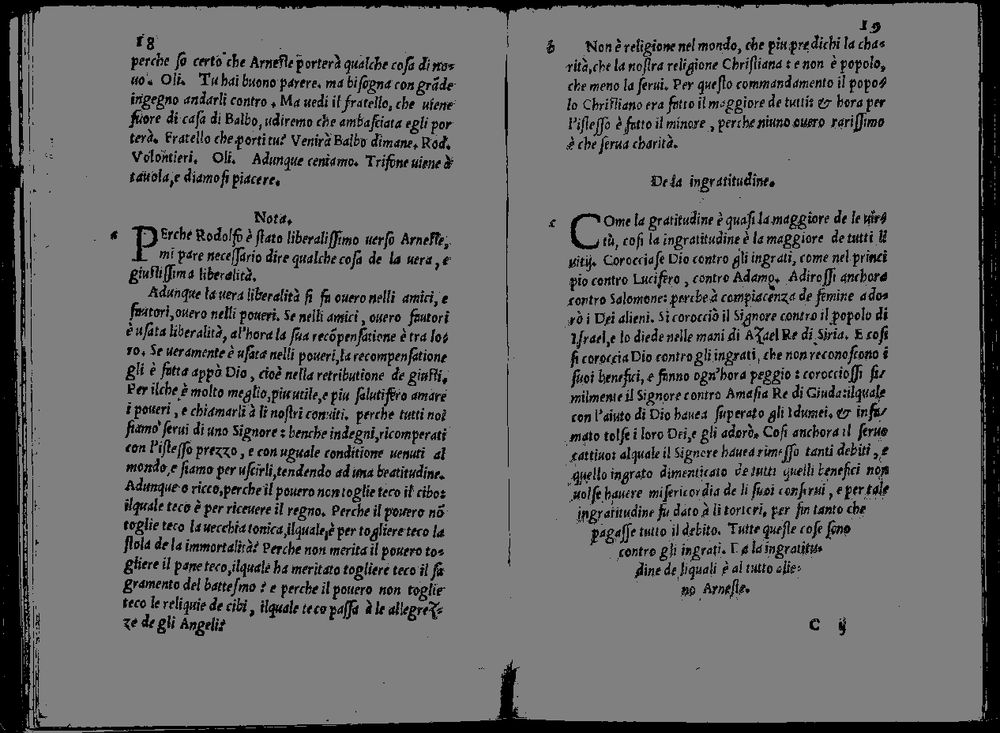 18
perche so certo che Arneste porterà qualche cosa di no=
uo. Oli. Tu hai buono parere. ma bisogna con grãde
ingegno andarli contro. Ma uedi il fratello, che uiene
fuore di casa di Balbo, udiremo che ambasciata egli por
terà. Fratello che porti tu? Venirà Balbo dimane. Rod.
Volontieri. Oli. Adunque ceniamo. Trifone uiene à
tauola, e diamosi piacere.
Nota.
a PErche Rodolfo è stato liberalissimo uerso Arneste,
mi pare necessario dire qualche cosa de la uera, e
giustissima liberalità.
Adunque la uera liberalità si fa ouero nelli amici, e
fautori, ouero nelli poueri. Se nelli amici, ouero fautori
è usata liberalità, al'hora la sua recõpensatione è tra lo=
ro. Se ueramente è usata nelli poueri, la recompensatione
gli è fatta appò Dio, cioè nella retributione de giusti.
Per ilche è molto meglio, piu utile, e piu salutifero amare
i poueri, e chiamarli à li nostri conuiti. perche tutti noi
siamo serui di uno Signore: benche indegni, ricomperati
con l'istesso prezzo, e con uguale conditione uenuti al
mondo, e siamo per uscirli, tendendo ad una beatitudine.
Adunque o ricco, perche il pouero non toglie teco il cibo:
ilquale teco è per riceuere il regno. Perche il pouero nõ
toglie teco la uecchia tonica, ilquale, è per togliere teco la
stola de la immortalità? Perche non merita il pouero to=
gliere il pane teco, ilquale ha meritato togliere teco il sa
gramento del battesmo? e perche il pouero non toglie
teco le reliquie de cibi, ilquale teco passa à le allegrez=
ze de gli Angeli?
19
b Non è religione nel mondo, che piu predichi la cha=
rità, che la nostra religione Christiana: e non è popolo,
che meno la serui. Per questo commandamento il popo=
lo Christiano era fatto il maggiore de tutti: & hora per
l'istesso è fatto il minore, perche niuno ouero rarissimo
è che serua charità.
De la ingratitudine.
c COme la gratitudine è quasi la maggiore de le uir=
tù, cosi la ingratitudine è la maggiore de tutti li
uitij. Corocciase Dio contro gli ingrati, come nel princi
pio contro Lucifero, contro Adamo. Adirossi anchora
contro Salomone: perche à compiacenza de femine ado=
rò i Dei alieni. Si coroccìò il Signore contro il popolo di
Israel, e lo diede nelle mani di Azael Re di Siria. E cosi
si coroccia Dio contro gli ingrati, che non reconoscono i
suoi benefici, e fanno ogn'hora peggio: corocciossi si=
milmente il Signore contro Amasia Re di Giuda: ilquale
con l'aiuto di Dio hauea superato gli Idumei. & infa=
mato tolse i loro Dei, e gli adorò. Cosi anchora il seruo
cattiuo: al quale il Signore hauea rimesso tanti debiti, e
quello ingrato dimenticato de tutti quelli benefici non
uolse hauere misericordia de li suoi conserui, e per tale
ingratitudine fu dato à li tortori, per fin tanto che
pagasse tutto il debito. Tutte queste cose sono
contro gli ingrati. Da la ingratitu=
dine de liquali è al tutto alie=
no Arneste.
C ij